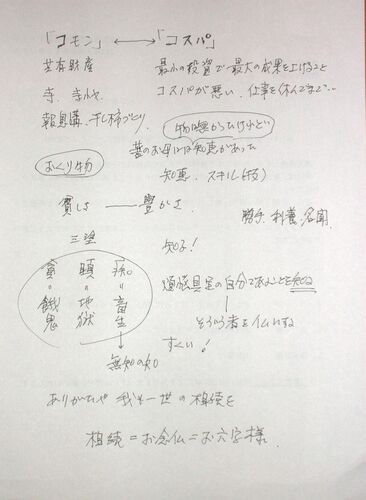 「コモン」 ←→ 「コスパ」
共有財産 最小の投資で最大の成果を上げること
寺、 コスパが悪い、仕事を休んでまで…
報恩講、干し柿づくり、
物は無かったけれど
昔のお には知恵があった
おくり物
知恵、スキル(技)
貧しさ ── 豊かさ
勝手、利養、名聞、
三塗
知る!
貪=餓鬼
瞋=地獄
痴=畜生
煩悩具足の自分であることを知る
そういう者を仏にする
すくい!
無知の知
ありがたや 我も一世の相続を
相続=お念仏=お六字様